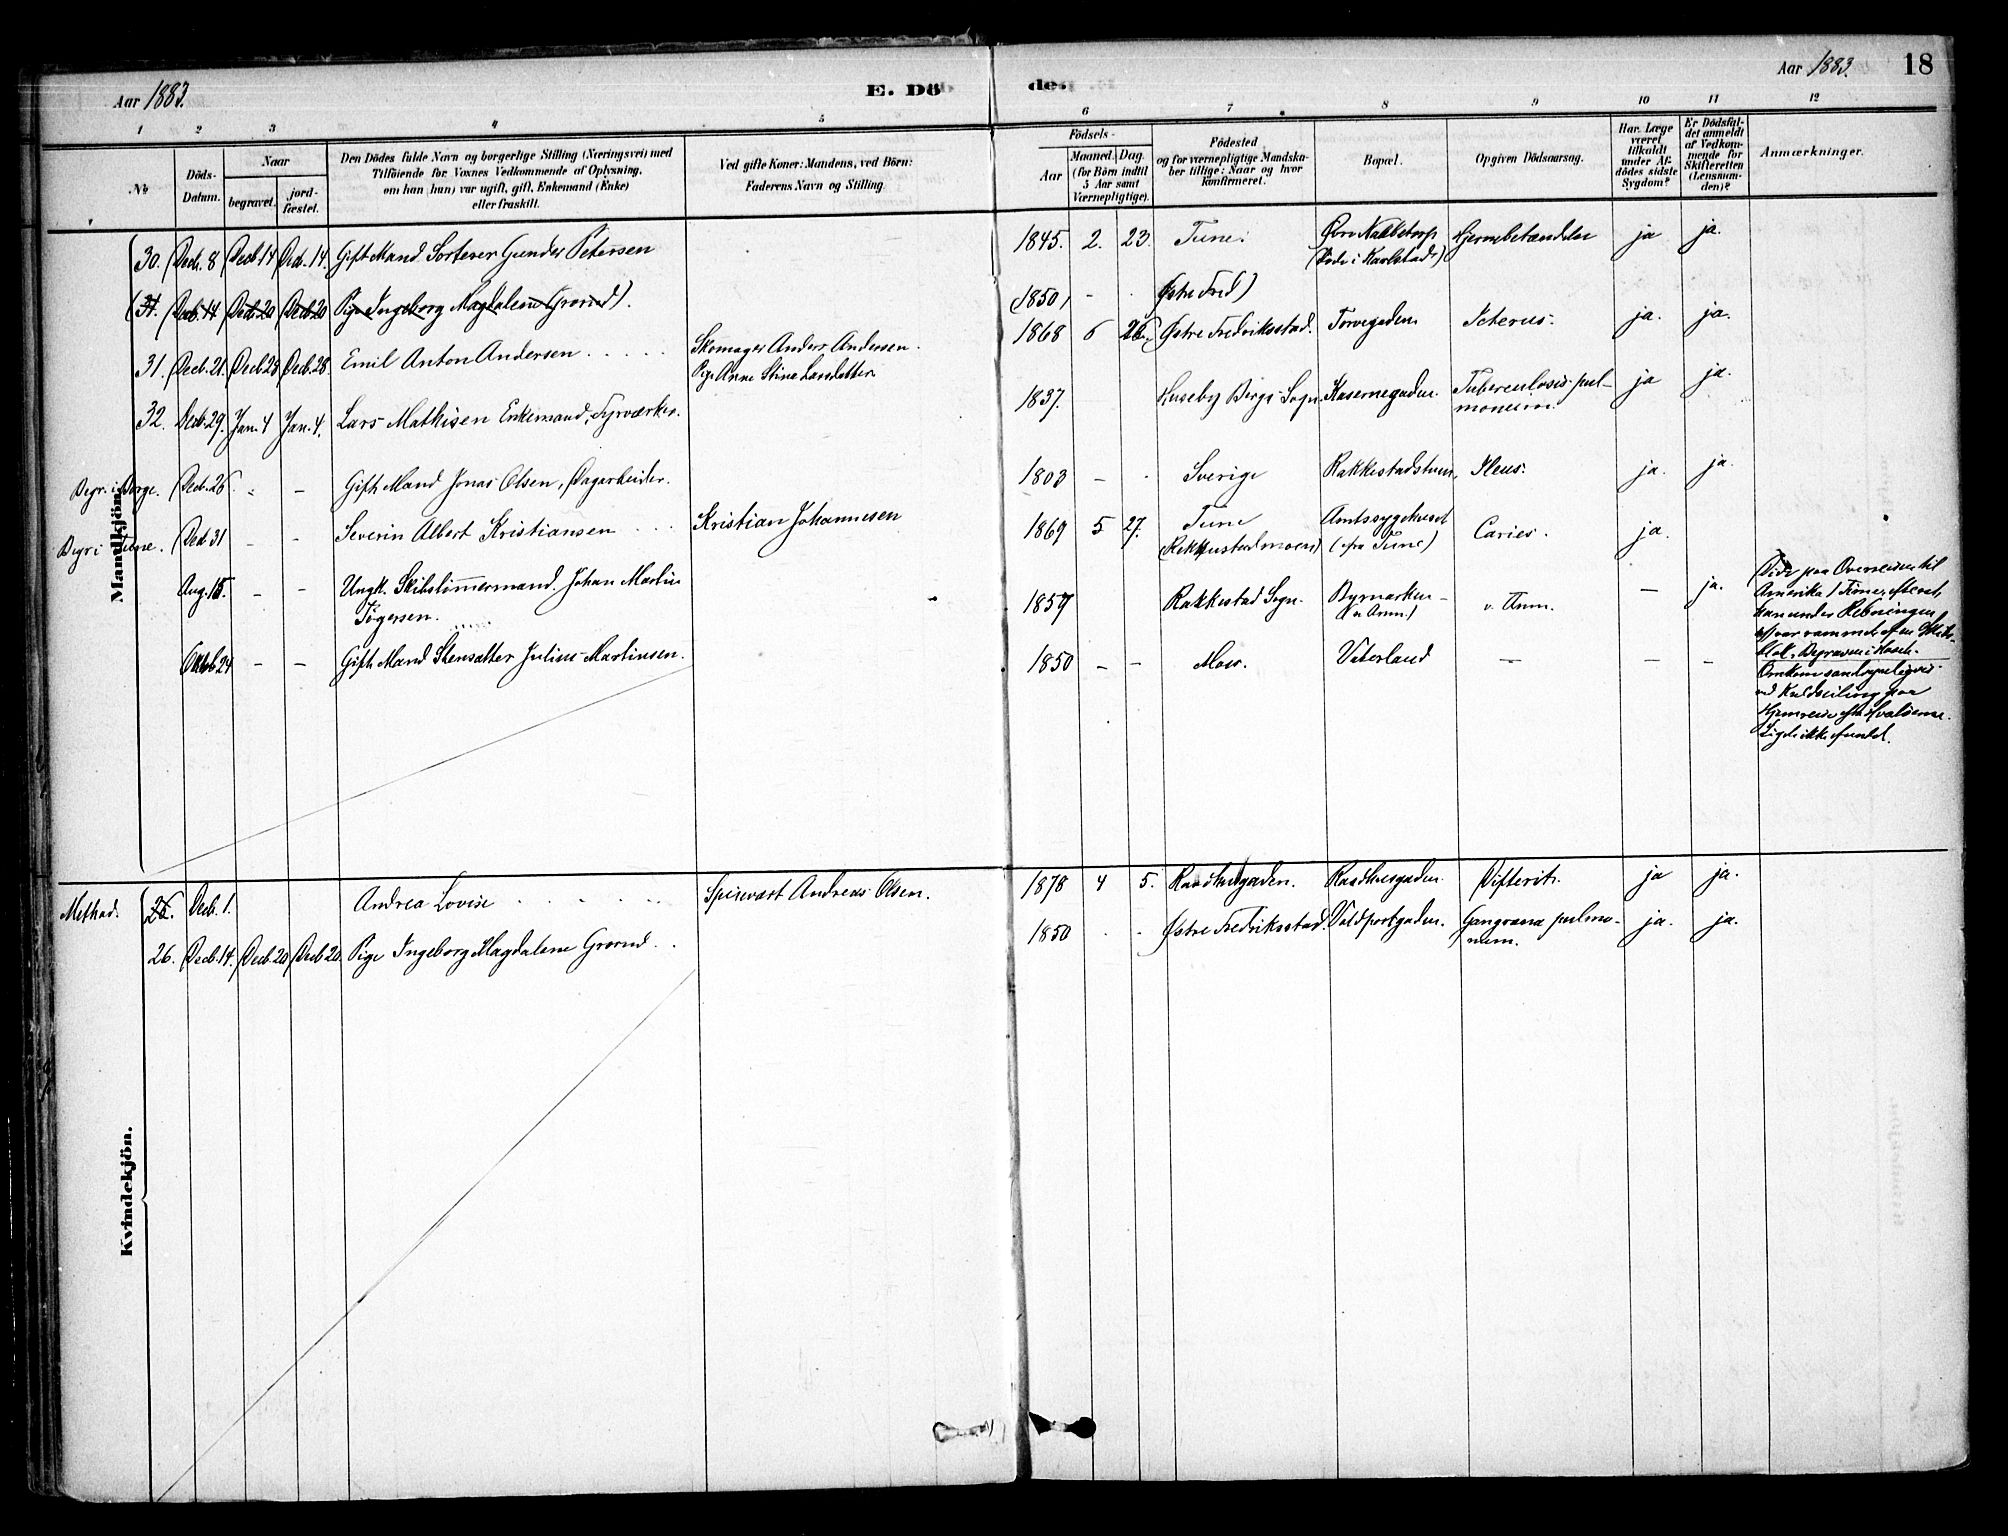 Aar 1883.
E. Dö
de.
Aar 1883.
18
1 2 3 4 5 6 7 8 9 10 11 12
No
Döds-
Datum.
Naar
begravet.
jord-
fæstet.
Den Dödes fulde Navn og borgerlige Stilling (Næringsvei) med
Tilföiende for Voxnes Vedkommende af Oplysning,
om han (hun) var ugift, gift, Enkemand (Enke)
eller fraskilt.
Ved gifte Koner: Mandens, ved Börn:
Faderens Navn og Stilling.
Födsels-
Aar
Maaned. Dag.
(for Börn indtil
5 Aar samt
Værnepligtige).
Födested
og for værnepligtige Mandska-
ber tillige: Naar og hvor
konfirmeret.
Bopæl.
Opgiven Dödsaarsag.
Har Læge
været
tilkaldt
under Af-
dödes sidste
Sygdom?
Er Dödsfal-
det anmeldt
af Vedkom-
mende for
Skifteretten
(Lensman-
den)?
Anmærkninger.
Mandkjön.
30. Decb. 8 Decb 14 Deb. 14. Gift Mand Sorterer Gunder Petersen 1845. 2. 23. Tune. Övre Nabbetorp Hjernebetændelse ja ja.
(Döde i Karlstad)
(31. Decb. 14 Decb. 20 Decb 20 Pige Ingeborg Magdalene Grorud). (1850) - . Östre Fred)
31. Decb. 21. Decb 28 Decb. 28. Emil Anton Andersen Skomager Anders Andersen. 1868 6 26. Östre Fredriksstad. Torvegaden Icterus. ja. ja.
Pige Anne Stina Larsdatter
32. Decb. 29. Jan. 4 Jan. 4. Lars Mathisen Enkemand, Fyrværker. 1837. Huseby Bergs Sogn. Kasernegaden. Tuberculosis pul- ja ja.
monum.
Begr. i Borge. Decb. 26. - - Gift Mand Jonas Olsen, Dagarbeider. 1803 - . Sverige Rakkestadstuen, Ileus. ja. ja.
Begr i Tune. Decb 31 - - Severin Albert Kristiansen Kristian Johannesen 1869 5 27. Tune Amtssygehuset Caries. ja.
(Rakkestadmoen) (fra Tune)
Aug. 15. - - Ungk. Skibstömmermand. Johan Martin 1857 Rakkestad Sogn. Bymarken v. Anm. - ja.
Jörgersen. (v. Anm.)
Döde paa Overreisen til
Amerika 1 Time, efterat
han under Rebningen
var rammet af en
blok. Begraven i
Oktob. 24 - - Gift Mand Stensætter Julius Martinsen. 1850 - - Moss. Vaterland - - -
Omkom sandsynligvis
ved Kuldseiling paa
Hjemreise fra Hvalöerne.
Liget ikke fundet.
Kvindekjön.
Methad. 25. Decb. 1. Andrea Lovise Spisevært Andreas Olsen. 1878 4 5. Raadhusgaden. Raadhusgaden. Difterit. ja ja.
26. Decb. 14. Decb. 20 Decb 20. Pige Ingeborg Magdalene Grorud. 1850 . - Östre Fredriksstad. Voldportgaden. Gangræna pulmo- ja. ja.
num.